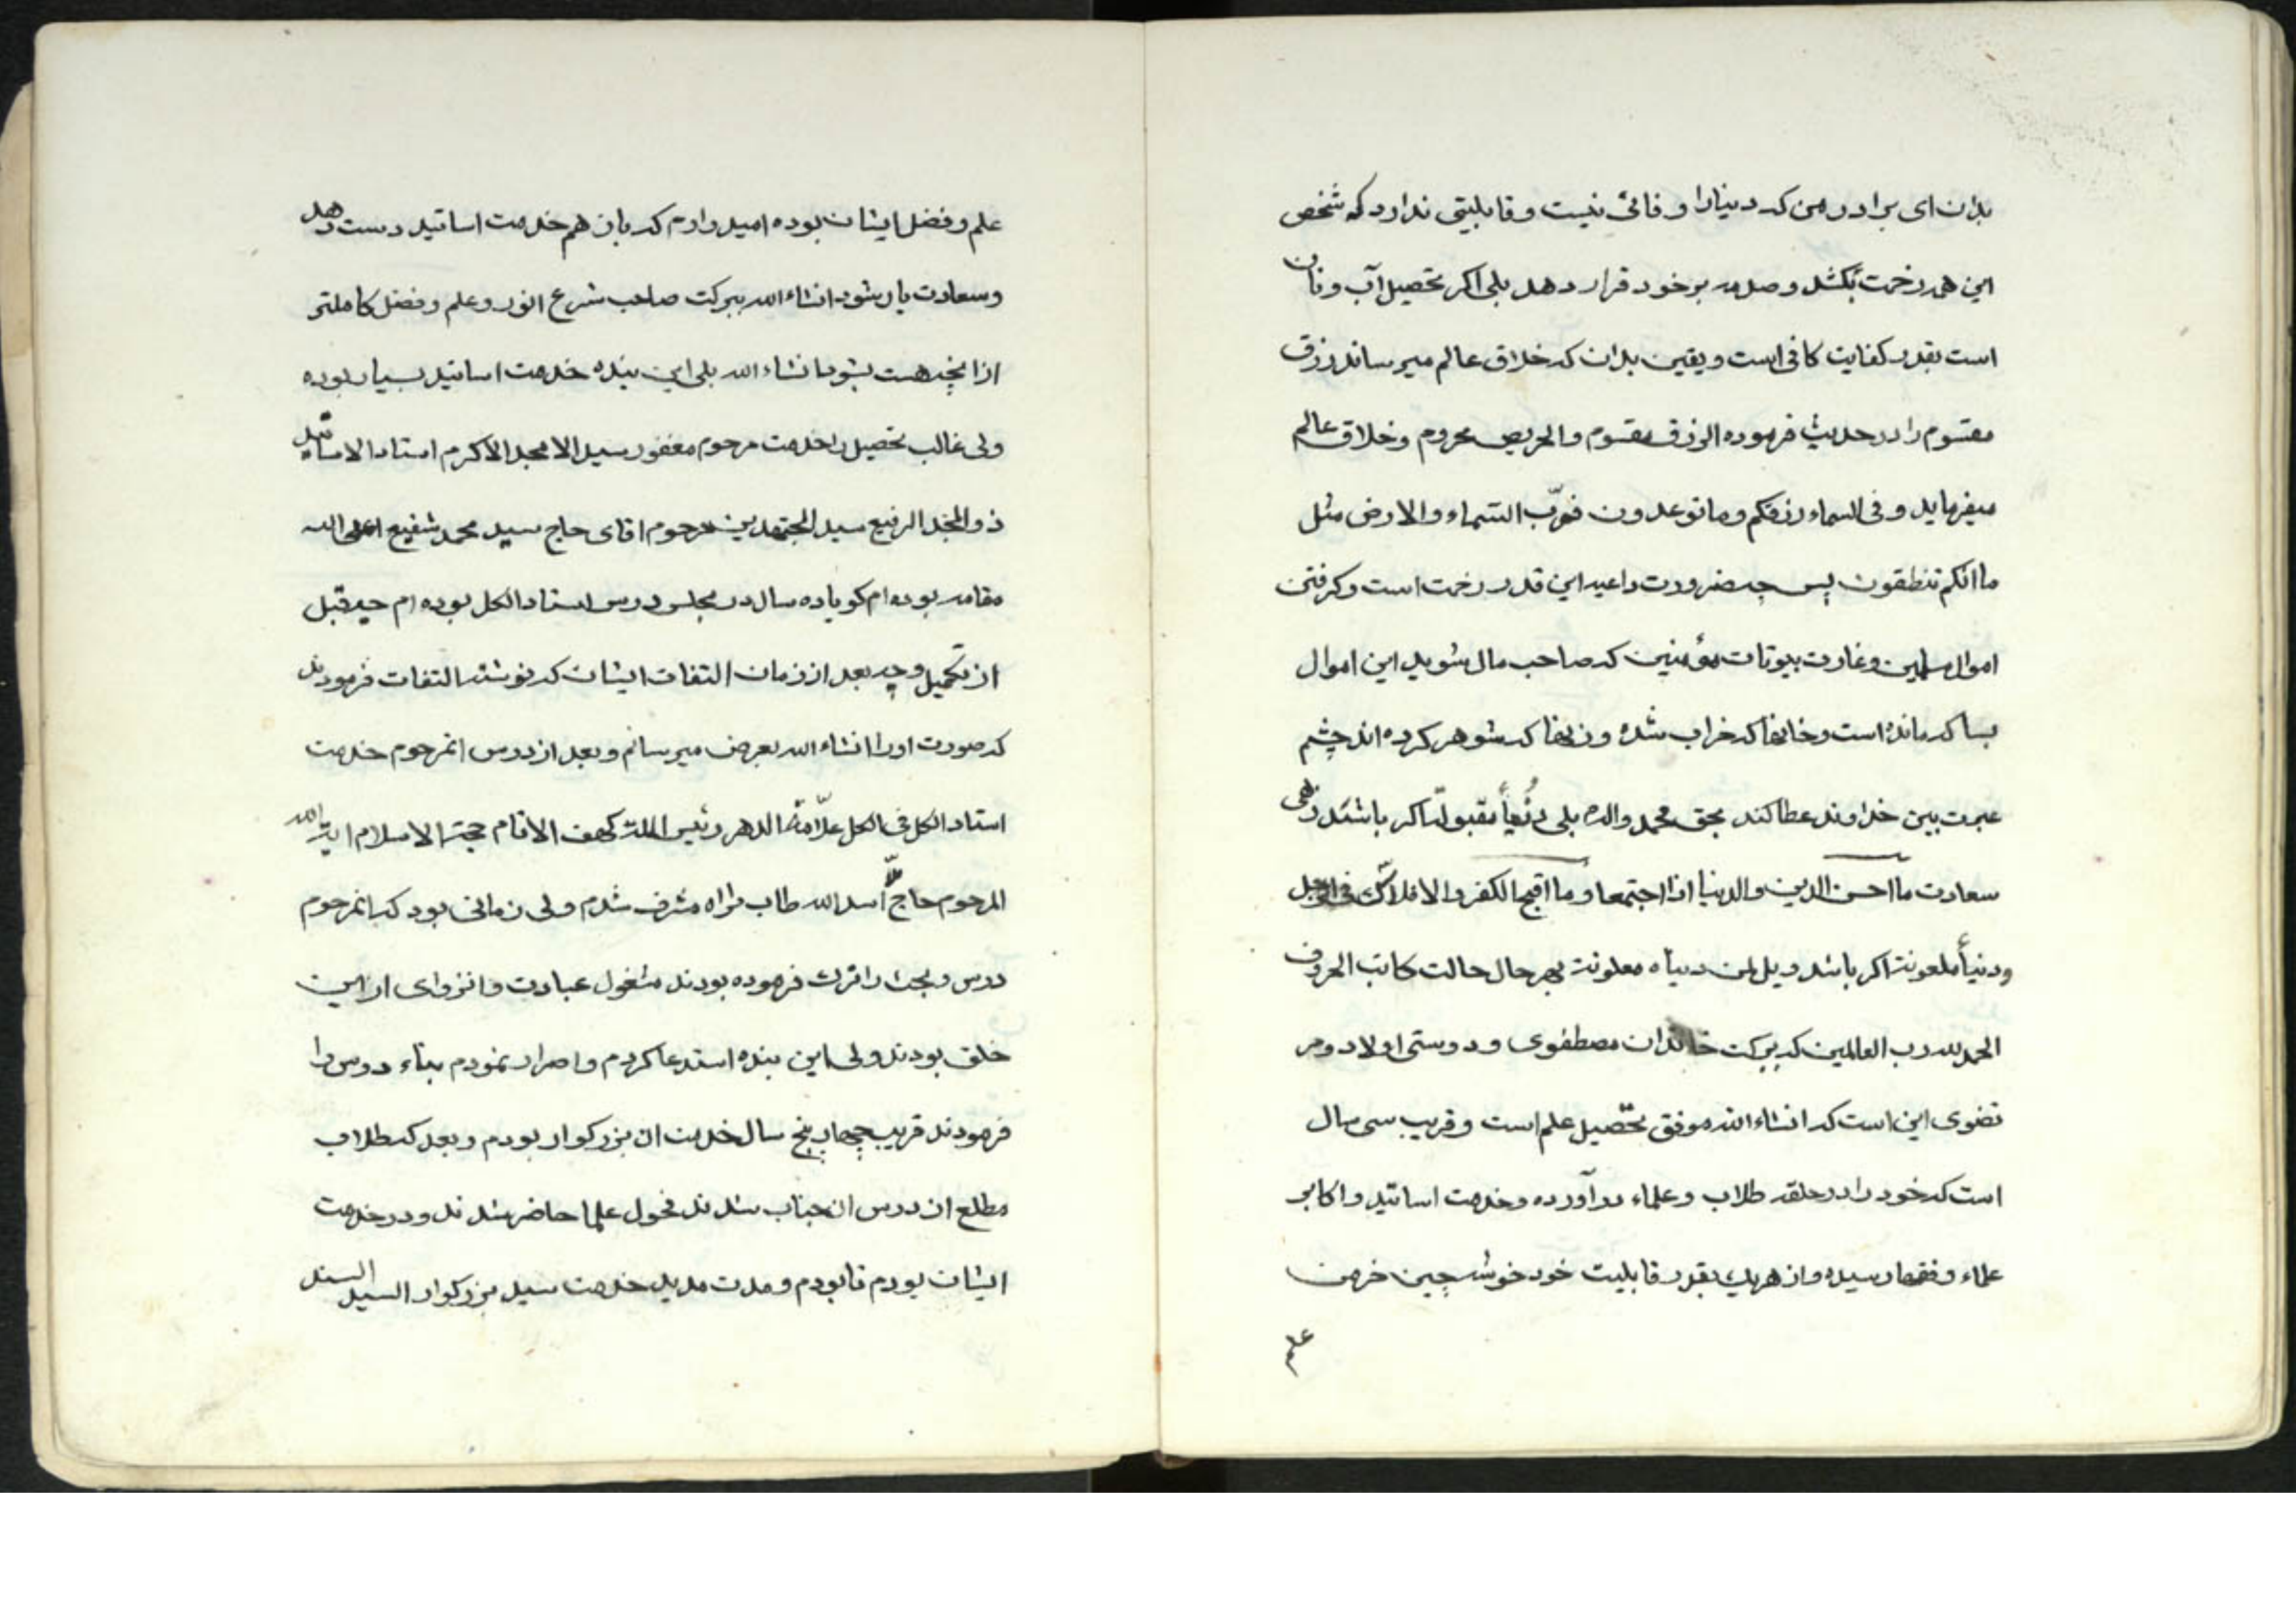 بدان ای برادر من که دنیا را وفائی نیست و قابلیتی ندارد که شخص
این همه زحمت بکشد و صدمه بر خود قرار دهد بلی اکر تحصیل آب و نان
است بقدر کفایت کافی است و یقین بدان که خلاق عالم میرساند رزق
مقسوم را در حدیث فرموده الرزق مقسوم والحریص محروم وخلاق عالم
میفرماید وفی السماء رزقکم وما توعدون فوربّ السماء والارض مثل
ما انکم تنطقون پس چه ضرورت داعیه این قدر زحمت است و کرفتن
اموال مسلمین و غارت بیوتات مؤمنین که صاحب مال شوید این اموال
بسا که مانده است و خانها که خراب شده و زنها که شوهر کرده اند چشم
عبرت بین خداوند عطا کند بحق محمد واله بلی دُنْیاً مقبولة اکر باشد زهی
سعادت ما احسن الدین والدنیا اذا اجتمعا وما اقبح الکفر والافلاس فی الرجل
و دنیاً ملعونة اکر باشد ویل لمن دنیاه معلونة بهر حال حالت کاتب الحروف
الحمد لله رب العالمین که ببرکت خاندان مصطفوی و دوستی اولاد مر
تضوی این است که انشاء الله موفق بتحصیل علم است و قریب سی سال
است که خود را در حلقه طلاب و علماء درآورده و خدمت اساتید و اکابر
علماء و فقهاء رسیده و از هر یک بقدر قابلیت خود خوشه چین خرمن
علم
علم و فضل ایشان بوده امیدوارم که باز هم خدمت اساتید دست دهد
و سعادت یار شود انشاء الله ببرکت صاحب شرع انور و علم و فضل کاملتر
از انچه هست بشود انشاء الله بلی این بنده خدمت اساتید بسیار بوده
ولی غالب تحصیل را خدمت مرحوم مغفور سید الامجد الاکرم استاد الاساتید
ذو المجد الرفیع سید المجتهدین مرحوم اقای حاج سید محمد شفیع اعلی الله
مقامه بوده ام کویا ده سال در مجلس درس استاد الکل بوده ام چه قبل
از تکمیل و چه بعد از زمان التفات ایشان که نوشته التفات فرمودند
که صورت او را انشاء الله بعرض میرسانم و بعد از درس انمرحوم خدمت
استاد الکل فی الکل علّامة الدهر رئیس الملة کهف الانام حجة الاسلام ایة الله
المرحوم حاج ملّا اسد الله طاب ثراه مشرف شدم ولی زمانی بود که انمرحوم
درس و بحث را ترک فرموده بودند مشغول عبادت و انزوای از این
خلق بودند ولی این بنده استدعا کردم و اصرار نمودم بناء درس را
فرمودند قریب چهار پنج سال خدمت ان بزرکوار بودم و بعد که طلاب
مطلع از درس انجناب شدند فحول علما حاضر شدند و در خدمت
ایشان بودم تا بودم و مدت مدید خدمت سید بزرکوار السید السند